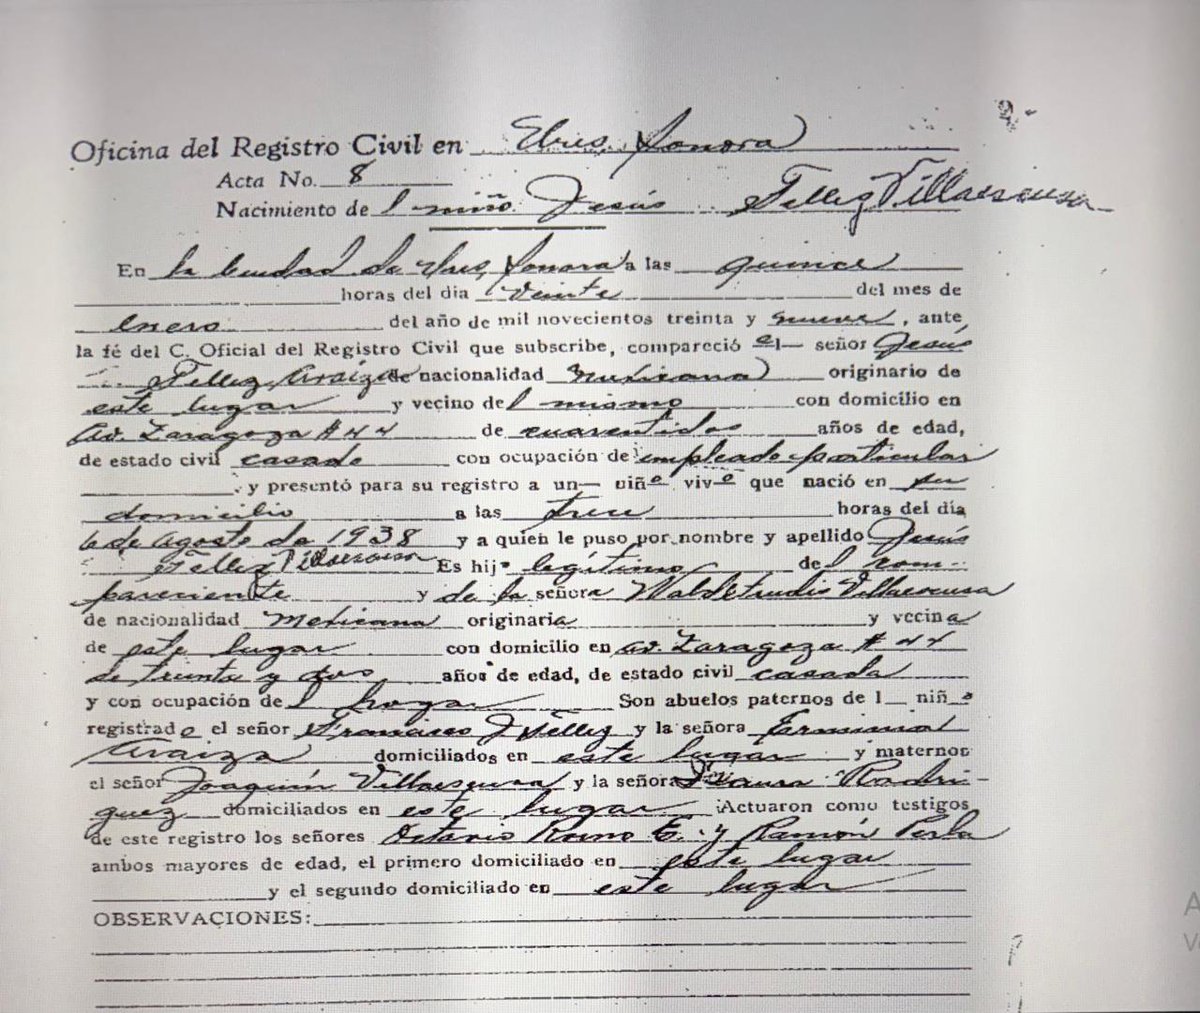 Oficina del Registro Civil en Ures, Sonora
Acta No. 8
Nacimiento del niño Jesús Tellez Villaescusa
En la Ciudad de Ures, Sonora a las quince
horas del día veinte del mes de
enero del año de mil novecientos treinta y nueve, ante
la fé del C. Oficial del Registro Civil que subscribe, compareció el señor Jesús
Tellez Araiza de nacionalidad mexicana originario de
este lugar y vecino del mismo con domicilio en
Av. Zaragoza # 44 de cuarentidos años de edad,
de estado civil casado con ocupación de empleado particular
y presentó para su registro a un niño vivo que nació en su
domicilio a las trece horas del día
6 de agosto de 1938 y a quien le puso por nombre y apellido Jesús
Tellez Villaescusa Es hijo legítimo del com-
pareciente y de la señora Waldetrudis Villaescusa
de nacionalidad Mexicana originaria y vecina
de este lugar con domicilio en Av. Zaragoza # 44
de treinta y dos años de edad, de estado civil casada
y con ocupación del hogar Son abuelos paternos del niño
registrado el señor Francisco Tellez y la señora
Araiza domiciliados en este lugar y maternos
el señor Joaquín Villaescusa y la señora Rodrí-
guez domiciliados en este lugar Actuaron como testigos
de este registro los señores Octavio Romo E. y Ramón Perla
ambos mayores de edad, el primero domiciliado en este lugar
y el segundo domiciliado en este lugar
OBSERVACIONES: